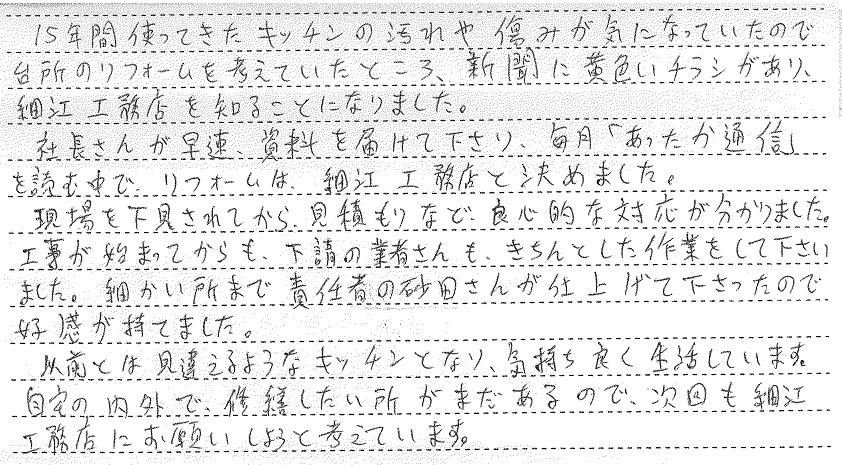 15年間使ってきたキッチンの汚れや傷みが気になっていたので
台所のリフォームを考えていたところ、新聞に黄色いチラシがあり、
細江工務店を知ることになりました。
社長さんが早速、資料を届けて下さり、毎月「あったか通信」
を読む中で、リフォームは、細江工務店と決めました。
現場を下見されてから、見積もりなど、良心的な対応が分かりました。
工事が始まってからも、下請の業者さんも、きちんとした作業をして下さい
ました。細かい所まで責任者の砂田さんが仕上げて下さったので
好感が持てました。
以前とは見違えるようなキッチンとなり、気持ち良く生活しています。
自宅の内外で、修繕したい所がまだあるので、次回も細江
工務店にお願いしようと考えています。